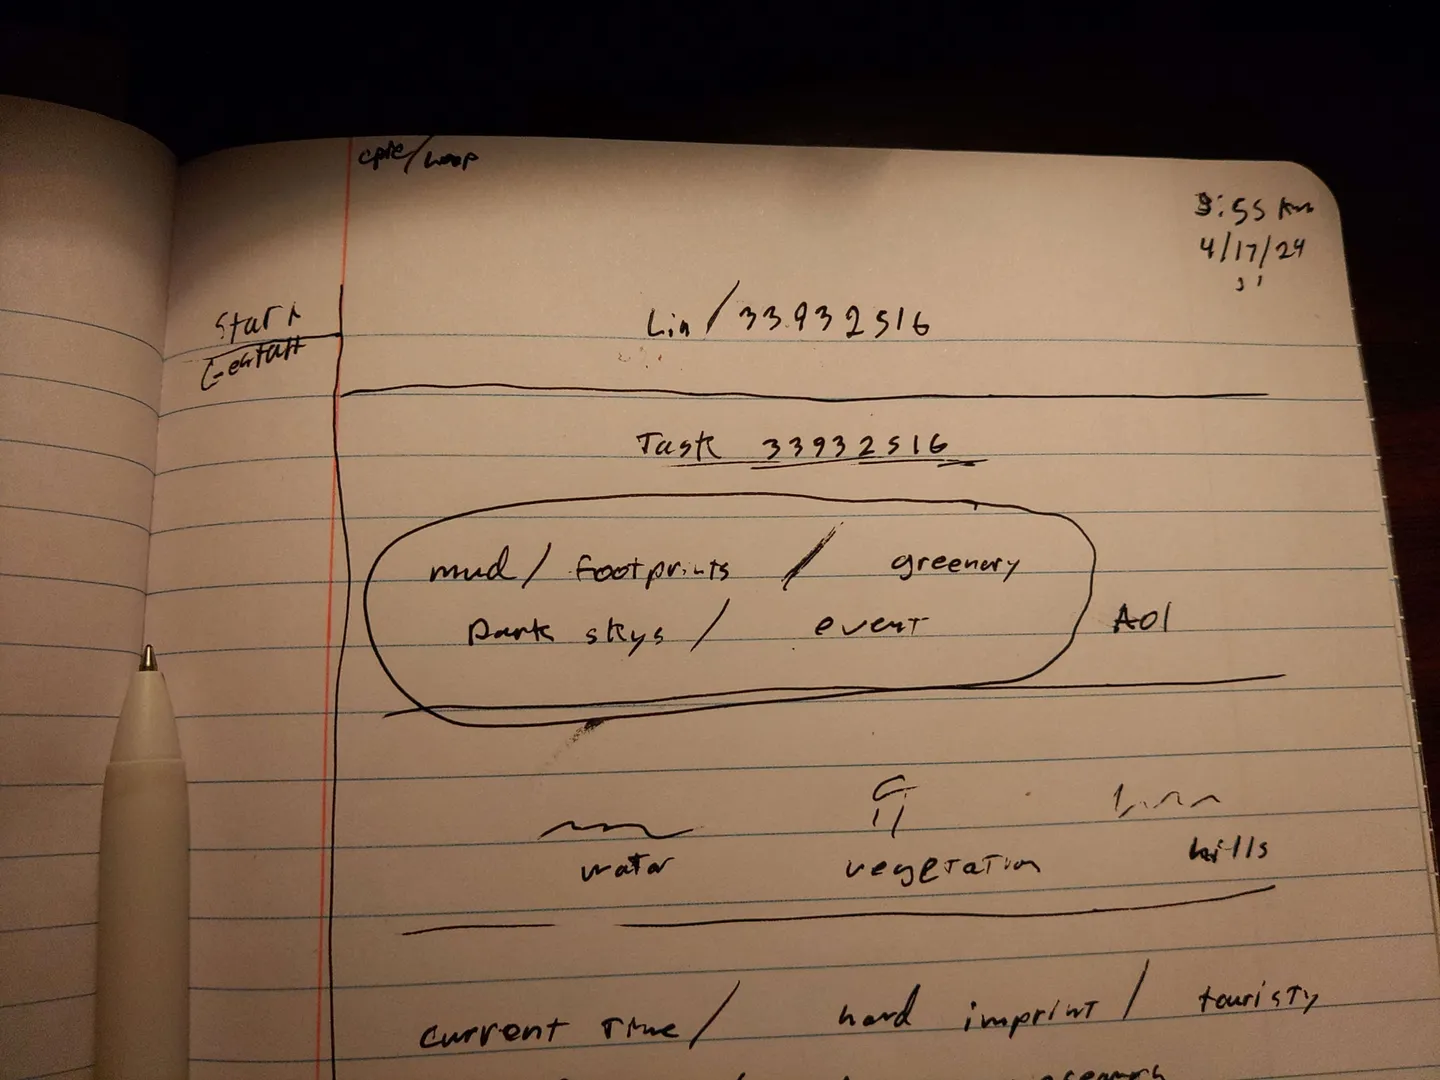 3:55 Am
4/17/24
Start
Gestalt
Lin/33932516
Task 33932516
mud/ footprints / greenery
Dark skys / event
AOI
water vegetation hills
current Time/ hard imprint/ touristy